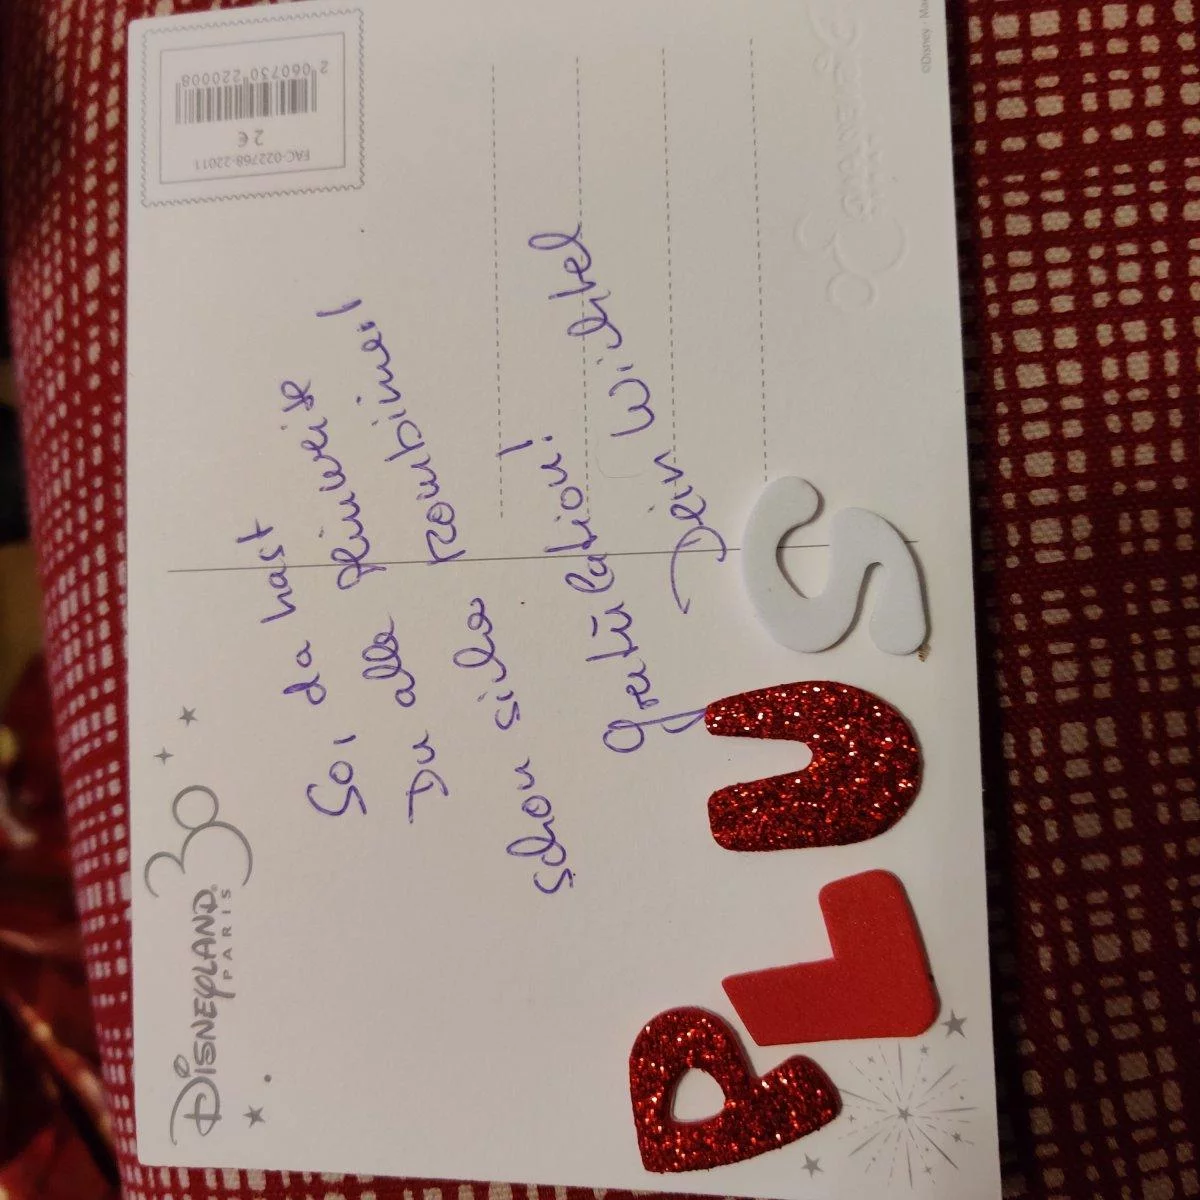 DISNEYLAND 30
PARIS
2 060730 220008
2 €
FAC-022768-22011
So, da hast
Du alle Hinweise!
Schon sicher kombiniert
Gratulation!
Dein Wichtel
PLUS
©Disney